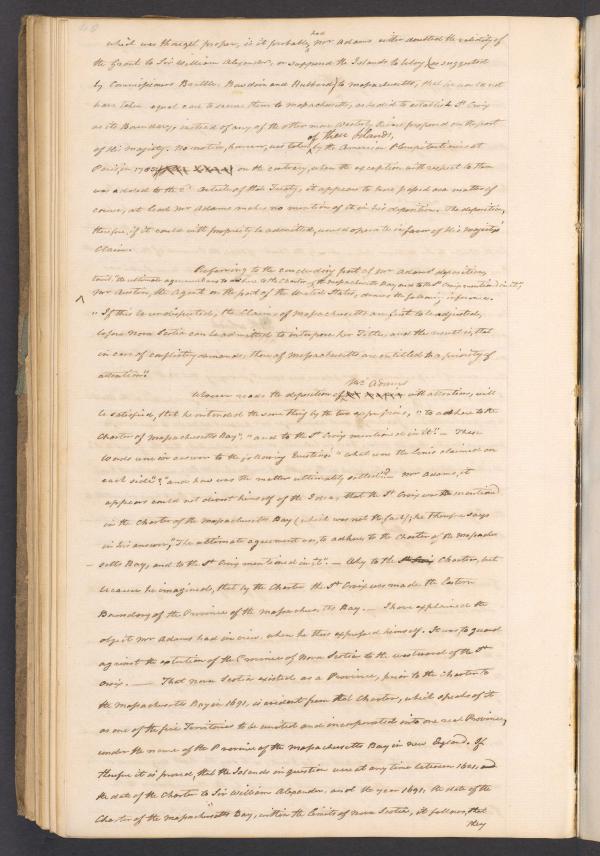 had
which was thought proper, is it probable Mr Adams either doubted the validity of
the Grant to Sir William Alexander, or supposed the Islands to belong (as suggested
by Commissioners Brattle, Bowdoin and Hubbard) to Massachusetts, that he would not
have taken equal care to secure them to Massachusetts, as he did to establish St Croix
as its Boundary, instead of any of the other more Westerly Rivers proposed on the part
of these Islands,
of His Majesty. No notice, however, was taken by the American Plenipotentiaries at
Paris, in 1782 on the contrary, when the exception with respect to them
was added to the 2d Article of that Treaty, it appears to have passed as a matter of
course, at least Mr Adams makes no mention of it in his deposition. The deposition,
therefore, if it could with propriety be admitted, would operate in favor of His Majesty's
Claim.
Referring to the concluding part of Mr Adams' deposition,
"the ultimate agreement was to adhere to the Charter of the Massachusetts Bay and to the St Croix mentioned in it,"
Mr Austin, the Agent on the part of the United States, draws the following inference.
"If this be undisputed, the Claims of Massachusetts are first to be adjusted,
before Nova Scotia can be admitted to interpose her Title, and the result is, that
in case of conflicting demands, those of Massachusetts are entitled to a priority of
attention".
Mr Adams
Whoever reads the deposition of with attention, will
be satisfied, that he intended the same thing by the two expressions, "to adhere to the
Charter of Massachusetts Bay", "and to the St Croix mentioned in it". — These
words were in answer to the following Question: "what were the lines claimed on
each side"? "and how was the matter ultimately settled"? Mr Adams, it
appears could not divest himself of the Idea, that the St Croix was mentioned
in the Charter of the Massachusetts Bay (which was not the fact); he therefore says
in his answer, "The ultimate agreement was, to adhere to the Charter of the Massachu-
-setts Bay, and to the St Croix mentioned in it". — Why to the Charter, but
because he imagined, that by the Charter the St Croix was made the Eastern
Boundary of the Province of the Massachusetts Bay. — I have explained the
object Mr Adams had in view, when he thus expressed himself. It was, to guard
against the extention of the Province of Nova Scotia to the westward of the St
Croix. — That Nova Scotia existed as a Province, prior to the Charter to
the Massachusetts Bay in 1691, is evident from that Charter, which speaks of it
as one of the five Territories to be united and incorporated into one real Province,
under the name of the Province of the Massachusetts Bay in New England. If
therefore it is proved, that the Islands in question were at any time between 1621,
the date of the Charter to Sir William Alexander, and the year 1691, the date of the
Charter of the Massachusetts Bay, within the limits of Nova Scotia, it follows, that
they